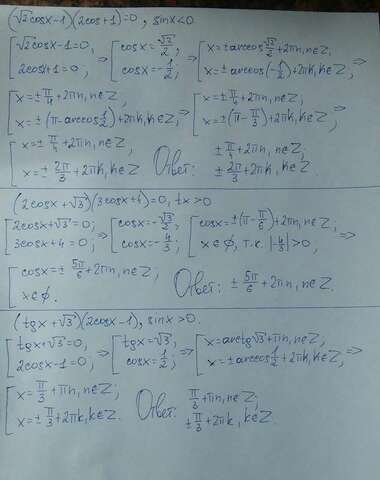 (√2cosx-1)(2cosx+1)=0, sinx<0
[√2cosx-1=0, 2cosx+1=0; ⇒ [cosx=√2/2, cosx=-1/2; ⇒ [x=±arccos√2/2+2πn, n∈Z, x=±arccos(-1/2)+2πk, k∈Z; ⇒
[x=±π/4+2πn, n∈Z, x=±(π-arccos1/2)+2πk, k∈Z; ⇒ [x=±π/4+2πn, n∈Z, x=±(π-π/3)+2πk, k∈Z; ⇒
[x=±π/4+2πn, n∈Z, x=±2π/3+2πk, k∈Z Ответ: ±π/4+2πn, n∈Z, ±2π/3+2πk, k∈Z.
(2cosx+√3)(3cosx+4)=0, tx>0
[2cosx+√3=0; 3cosx+4=0; ⇒ [cosx=-√3/2, cosx=-4/3; ⇒ [cosx=±(π-π/6)+2πn, n∈Z, x∈∅, т.к. |-4/3|>0, ⇒
[cosx=± 5π/6+2πn, n∈Z; x∈∅. Ответ: ± 5π/6+2πn, n∈Z.
(tgx+√3)(2cosx-1), sinx>0.
[tgx+√3=0, 2cosx-1=0; ⇒ [tgx=√3, cosx=1/2; ⇒ [x=arctg√3+πn, n∈Z, x=±arccos1/2+2πk, k∈Z; ⇒
[x=π/3+πn, n∈Z; x=±π/3+2πk, k∈Z. Ответ: π/3+πn, n∈Z, ±π/3+2πk, k∈Z.